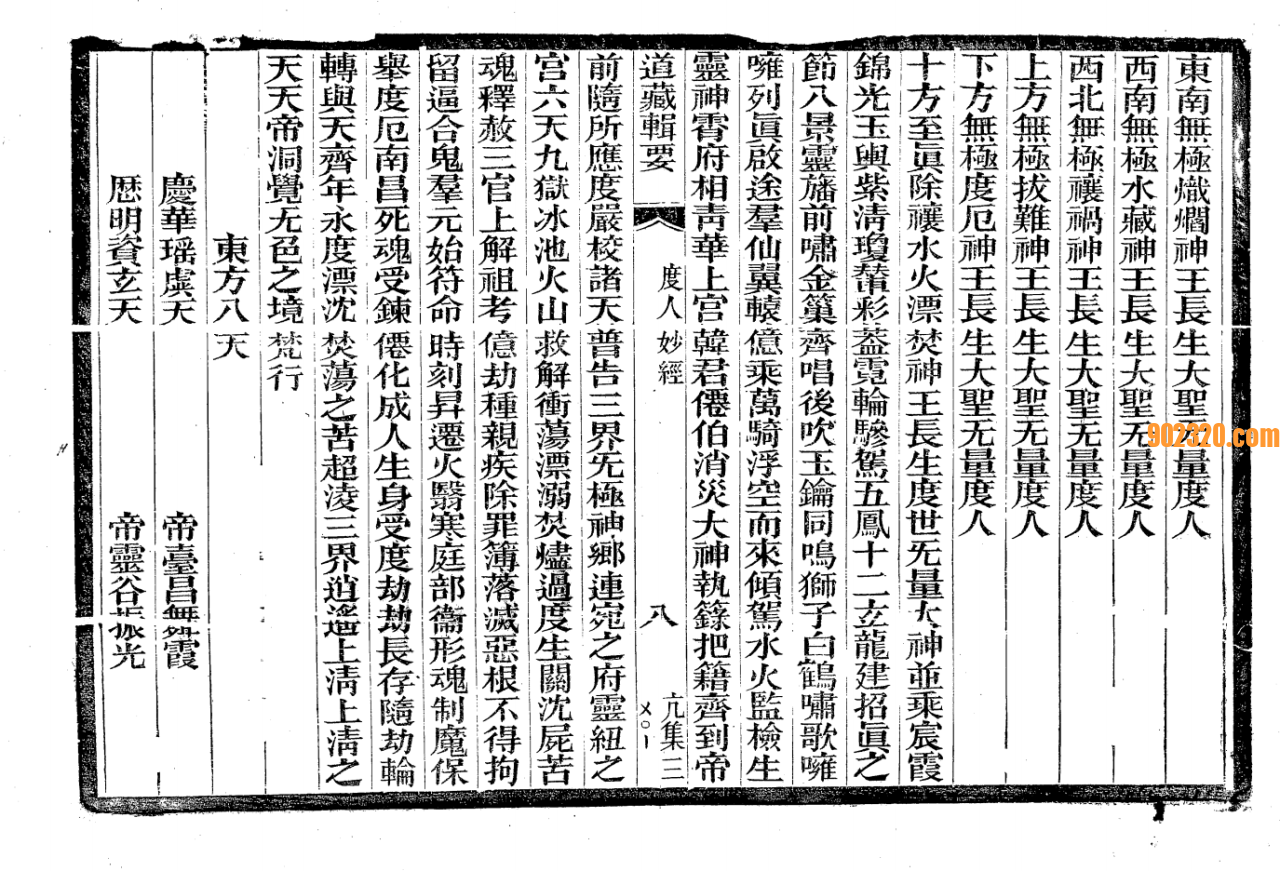 東南無極熾爓神王長生大聖无量度人
西南無極水藏神王長生大聖无量度人
西北無極禳禍神王長生大聖无量度人
上方無極拔難神王長生大聖无量度人
下方無極度厄神王長生大聖无量度人
十方至眞除禳水火漂焚神王長生度世无量大神並乘宸霞
錦光玉輿紫淸瓊輦彩蓋霓輪驂駕五鳳十二玄龍建招眞之
節八景靈旛前嘯金篥齊唱後吹玉鑰同鳴獅子白鶴嘯歌嗈
嗈列眞啟途羣仙翼轅億乘萬騎浮空而來傾駕水火監檢生
靈神霄府相靑華上宮韓君僊伯消災大神執籙把籍齊到帝
道藏輯要 度人妙經 八 亢集三 〤〇〡
前隨所應度嚴校諸天普告三界无極神鄉連宛之府靈紐之
宮六天九獄冰池火山救解衝蕩漂溺焚燼過度生關沈屍苦
魂釋赦三官上解祖考億劫種親疾除罪簿落滅惡根不得拘
留逼合鬼羣元始符命時刻昇遷火翳寒庭部衞形魂制魔保
舉度厄南昌死魂受鍊僊化成人生身受度劫劫長存隨劫輪
轉與天齊年永度漂沈焚蕩之苦超淩三界逍遙上淸上淸之
天天帝洞覺无色之境梵行
東方八天
慶華瑶虞天 帝臺昌無舜霞
歷明資玄天 帝靈谷振光
902320.com